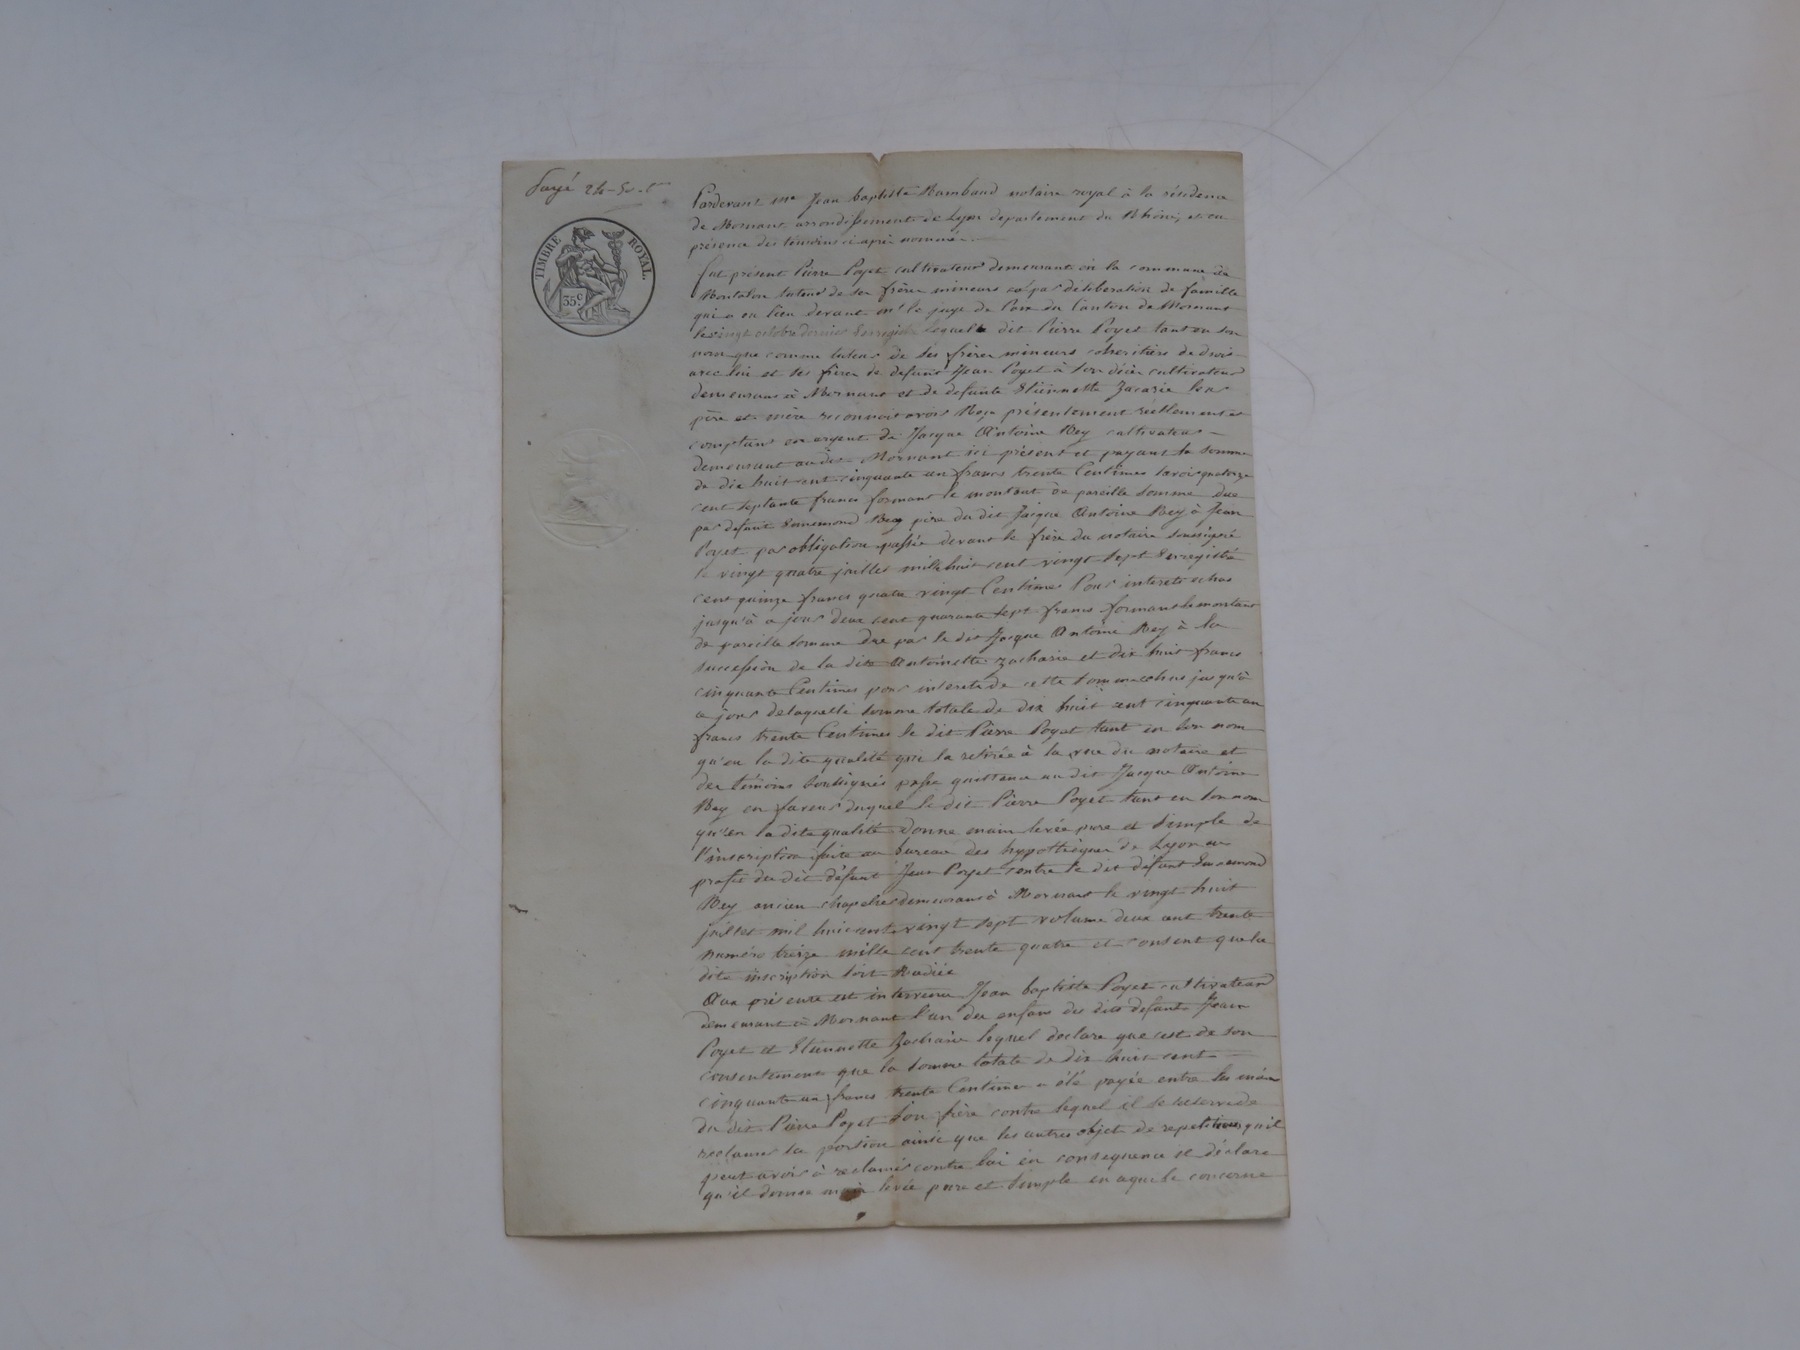 Payé
TIMBRE ROYAL.
35c
Pardevant me Jean baptiste Rambaud notaire royal à la résidence
de Mornant arrondissement de Lyon departement du Rhône, et en
présence des témoins ci après nommés
fut présent Pierre Poyet cultivateur demeurant en la commune de
tuteur de ses frères mineurs par délibération de famille
qui a eu lieu devant mr le juge de Paix du Canton de Mornant
le vingt octobre dernier Enregistré lequel dit Pierre Poyet tant en son
nom que comme tuteur de ses frères mineurs coheritiers de droit
avec lui et ses frères de defunt Jean Poyet à son décès cultivateur
demeurant à Mornant et de defunte Etiennette Zacarie leur
père et mère reconnoit avoir Reçu présentement réellement et
comptant en argent de Jacque Antoine Rey cultivateur
demeurant au dit Mornant ici présent et payant la somme
de dix huit cent cinquante un francs trente Centimes savoir quatorze
cent septante francs formant le montant de pareille somme due
par defunt Ennemond Rey père du dit Jacque Antoine Rey à Jean
Poyet par obligation passée devant le frère du notaire soussigné
le vingt quatre juillet mil huit cent vingt sept Enregistré
cent quinze francs quatre vingt Centimes Pour interets echus
jusqu'à ce jour deux cent quarante sept francs formant le montant
de pareille somme due par le dit Jacque Antoine Rey à la
succession de la dite Antoinette Zacharie et dix huit francs
cinquante Centimes pour interets de cette somme echus jusqu'à
ce jour de laquelle somme totale de dix huit cent cinquante un
francs trente Centimes le dit Pierre Poyet tant en son nom
qu'en la dite qualité qui la retirée à la vue du notaire et
des témoins soussignés passe quittance au dit Jacque Antoine
Rey en faveur duquel le dit Pierre Poyet tant en son nom
qu'en la dite qualité donne main levée pure et simple de
l'inscription faite au bureau des hypothèques de Lyon au
profit du dit défunt Jean Poyet contre le dit défunt Ennemond
Rey ancien chapelier demeurant à Mornant le vingt huit
juillet mil huit cent vingt sept volume deux cent trente
numéro treize mille cent trente quatre et consent que la
dite inscription soit Radiée
Aux présente est intervenu Jean baptiste Poyet cultivateur
demeurant à Mornant l'un des enfans des dits défunts Jean
Poyet et Etiennette Zacharie lequel declare que c'est de son
consentement que la somme totale de dix huit cent
cinquante un francs trente Centimes a été payée entre les mains
du dit Pierre Poyet son frère contre lequel il se reserve de
reclamer sa portion ainsi que les autres objets de repetitions qu'il
peut avoir à reclamer contre lui en consequence il déclare
qu'il donne main levée pure et simple en ce qui le concerne